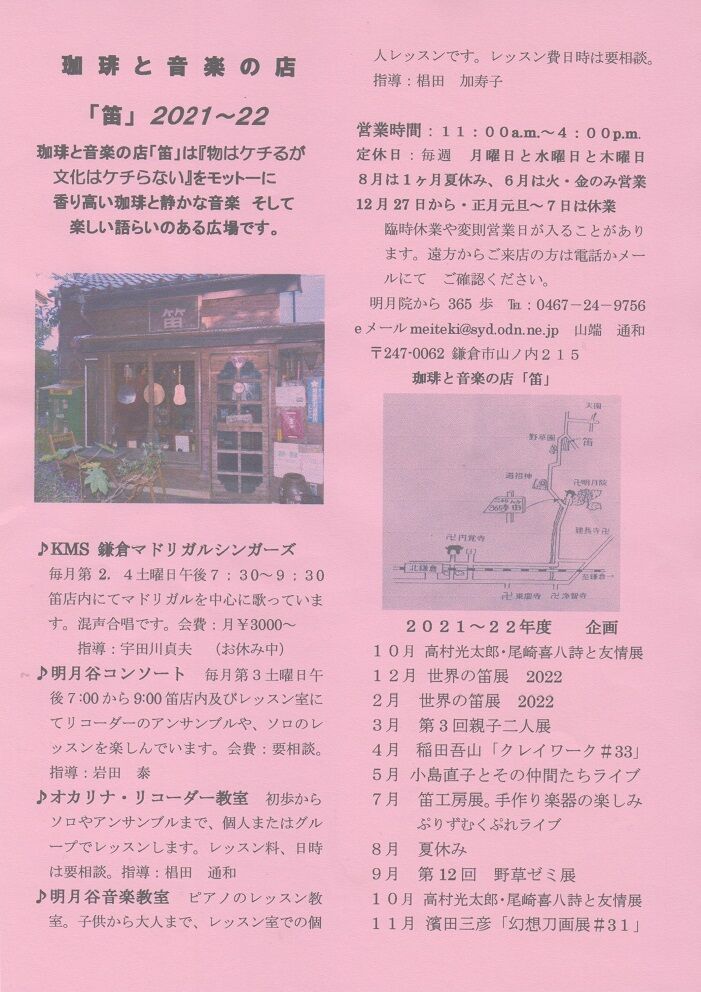 珈琲と音楽の店
「笛」 2021～22
珈琲と音楽の店「笛」は『物はケチるが
文化はケチらない』をモットーに
香り高い珈琲と静かな音楽 そして
楽しい語らいのある広場です。
笛
♪KMS 鎌倉マドリガルシンガーズ
毎月第 2．4土曜日午後7：30～9：30
笛店内にてマドリガルを中心に歌っていま
す。混声合唱です。会費：月￥3000～
指導：宇田川貞夫 （お休み中）
♪明月谷コンソート 毎月第３土曜日午
後7:00から9:00笛店内及びレッスン室に
てリコーダーのアンサンブルや、ソロのレ
ッスンを楽しんでいます。会費：要相談。
指導：岩田 泰
♪オカリナ・リコーダー教室 初歩から
ソロやアンサンブルまで、個人またはグル
ープでレッスンします。レッスン料、日時
は要相談。指導：椙田 通和
♪明月谷音楽教室 ピアノのレッスン教
室。子供から大人まで、レッスン室での個
人レッスンです。レッスン費日時は要相談。
指導：椙田 加寿子
営業時間：１１：００a.m.～４：００p.m.
定休日：毎週 月曜日と水曜日と木曜日
８月は１ヶ月夏休み、６月は火・金のみ営業
12月27日から・正月元旦～７日は休業
臨時休業や変則営業日が入ることがあり
ます。遠方からご来店の方は電話かメー
ルにて ご確認ください。
明月院から 365 歩 ℡：0467－24－9756
eメール meiteki@syd.odn.ne.jp 山端 通和
〒247-0062 鎌倉市山ノ内２１５
珈琲と音楽の店「笛」
天園
野草園
笛
道祖神
卍明月院
365歩 笛
建長寺卍
卍円覚寺
北鎌倉
至鎌倉→
卍東慶寺
卍浄智寺
２０２１～２２年度 企画
１０月 高村光太郎・尾崎喜八詩と友情展
１２月 世界の笛展 2022
２月 世界の笛展 2022
３月 第３回親子二人展
４月 稲田吾山「クレイワーク＃33」
５月 小島直子とその仲間たちライブ
７月 笛工房展。手作り楽器の楽しみ
ぷりずむくぷれライブ
８月 夏休み
９月 第12回 野草ゼミ展
１０月 高村光太郎・尾崎喜八詩と友情展
１１月 濱田三彦「幻想刀画展＃３１」